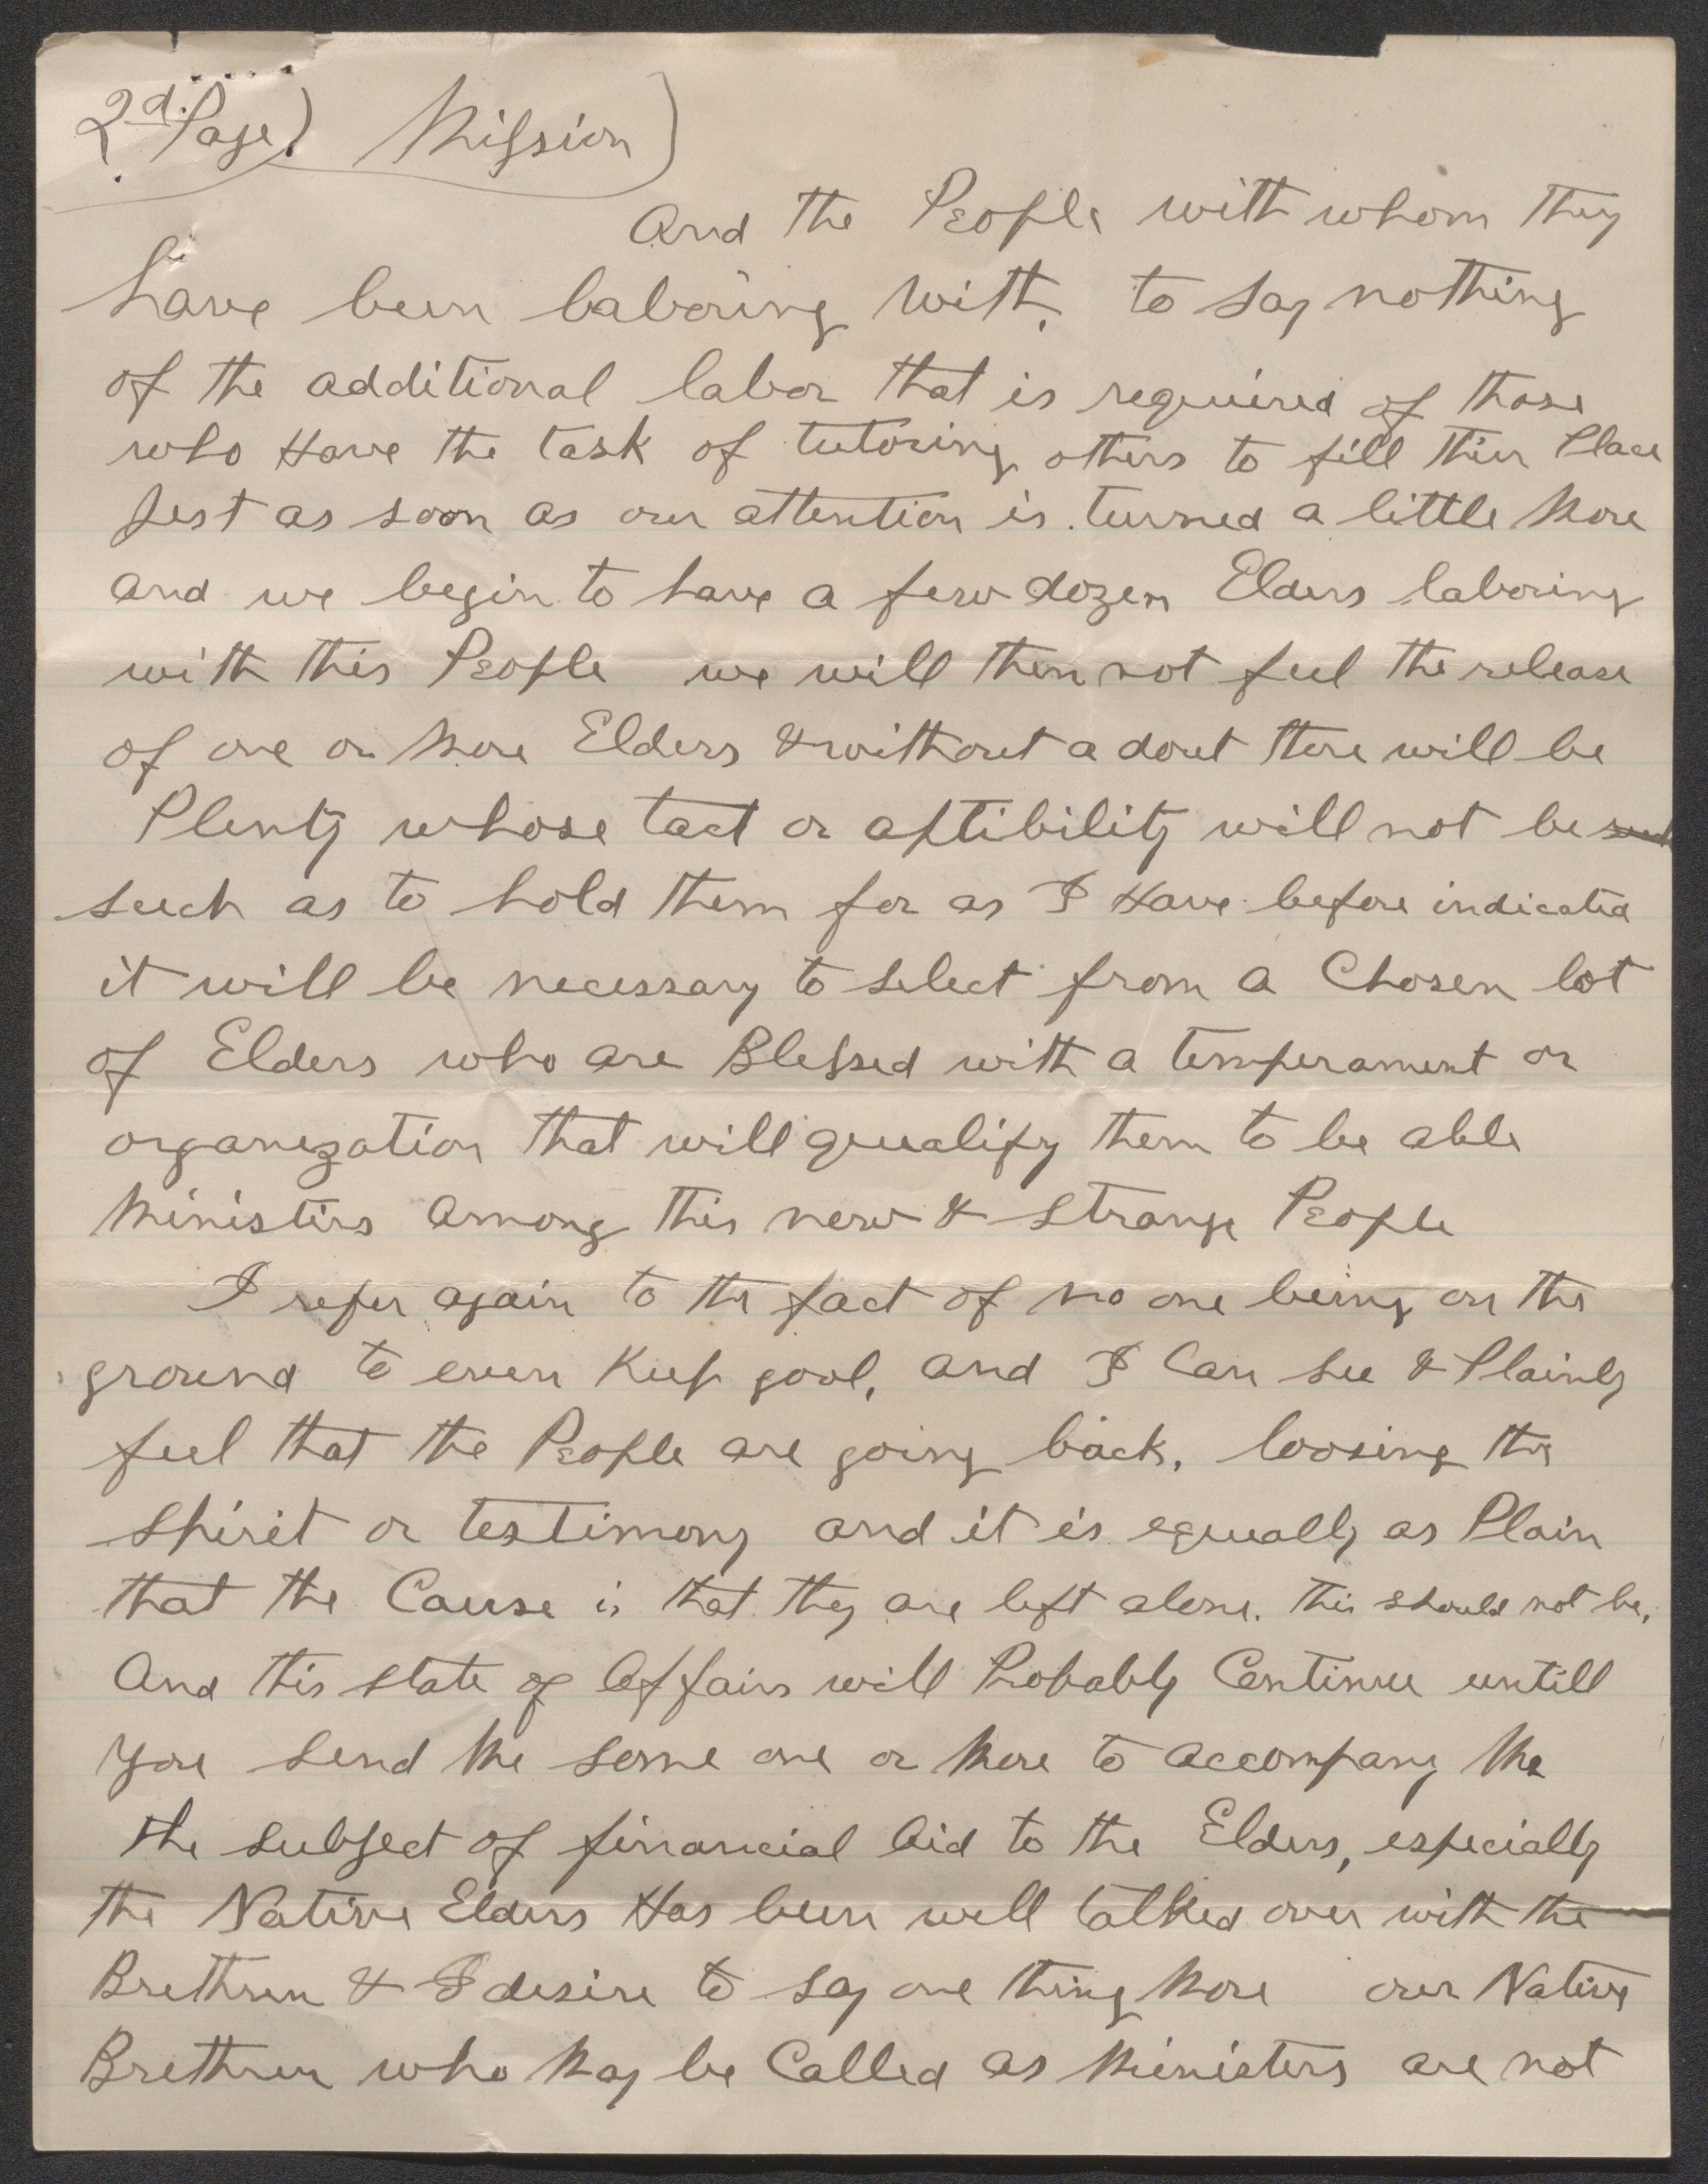 2d. Page) Mission)
And the People with whom they
have been laboring with. to say nothing
of the additional labor that is required of those
who Have the task of tutoring others to fill thier Place
Just as soon as our attention is turned a little More
and we begin to have a few dozen Elders laboring
with this People we will then not feel the release
of one or More Elders & without a dout there will be
Plenty whose tact or aptibility will not be
such as to hold them for as I Have before indicated
it will be necessary to select from a Chosen lot
of Elders who are Blessed with a temperament or
organezation that will qualify them to be able
Ministers among this new & strange People
I refer again to the fact of no one being on the
ground to even Keep gool, and I Can see & Plainly
feel that the People are going back, loosing the
Spirit or testimony and it is equally as Plain
that the Cause is that they are left alone. this should not be,
And this state of Affairs will Probably Continue untill
you send Me some one or More to accompany Me
the subject of financial Aid to the Elders, especially
the Native Elders Has been well talked over with the
Brethren & I desire to say one thing More our Native
Brethren who May be Called as Ministers are not